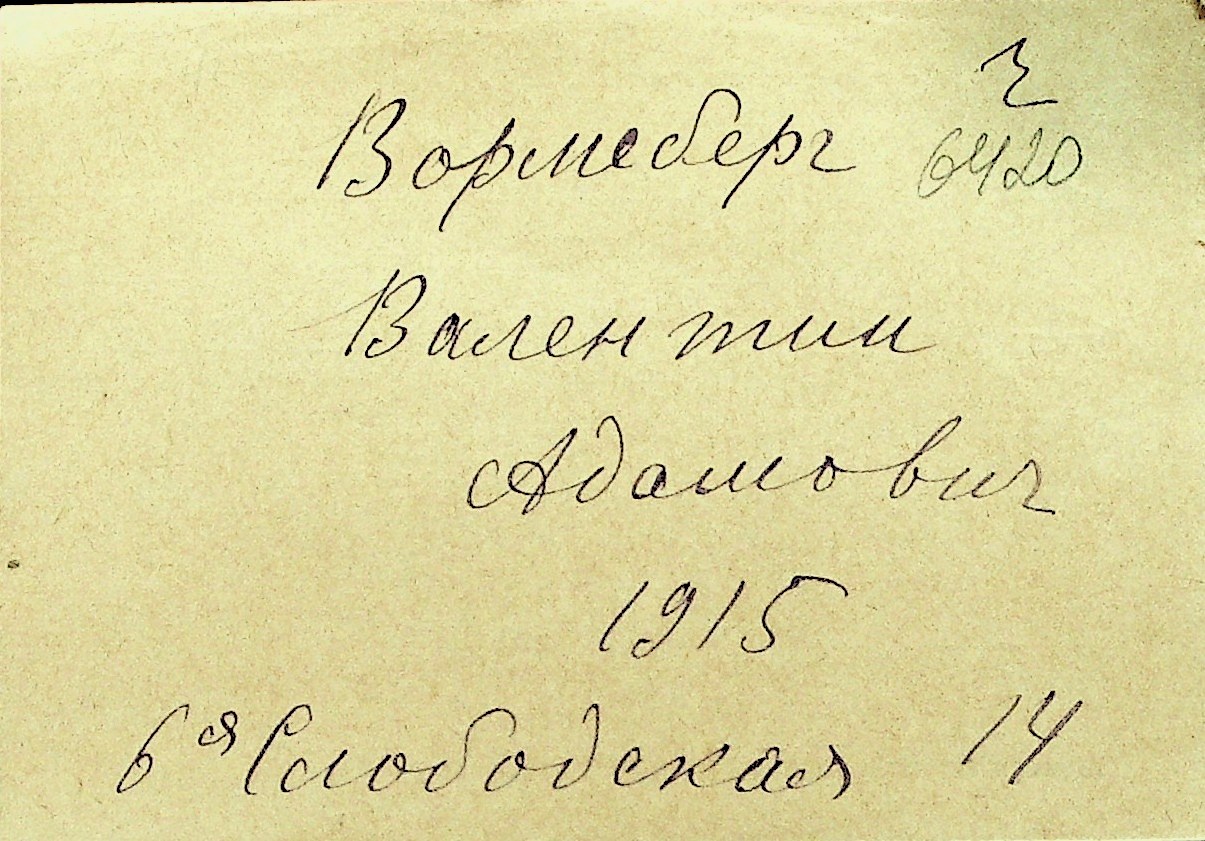 ч
Вормсберг 6420
Валентин
Адамович
1915
6ая Слободская 14